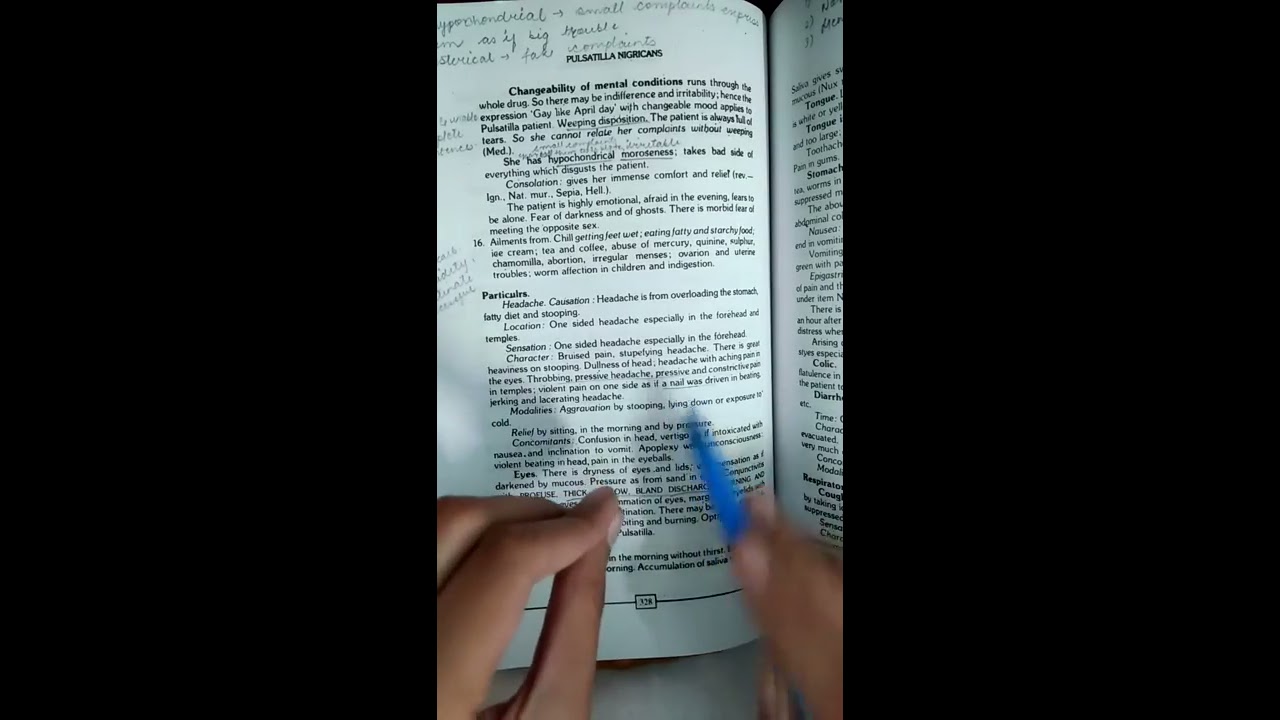 hypochondrial → small complaints express
as if big trouble
sterical → fake complaints
PULSATILLA NIGRICANS
Changeability of mental conditions runs through the
whole drug. So there may be indifference and irritability; hence the
expression 'Gay like April day' with changeable mood applies to
Pulsatilla patient. Weeping disposition. The patient is always full of
tears. So she cannot relate her complaints without weeping
(Med.).
small complaints irritable
She has hypochondrical moroseness; takes bad side of
everything which disgusts the patient.
Consolation: gives her immense comfort and relief (rev.—
Ign., Nat. mur., Sepia, Hell.).
The patient is highly emotional, afraid in the evening, fears to
be alone. Fear of darkness and of ghosts. There is morbid fear of
meeting the opposite sex.
16. Ailments from. Chill getting feet wet; eating fatty and starchy food;
ice cream; tea and coffee, abuse of mercury, quinine, sulphur,
chamomilla, abortion, irregular menses; ovarion and uterine
troubles; worm affection in children and indigestion.
Particulrs.
Headache. Causation : Headache is from overloading the stomach,
fatty diet and stooping.
Location: One sided headache especially in the forehead and
temples.
Sensation : One sided headache especially in the forehead.
Character: Bruised pain, stupefying headache. There is great
heaviness on stooping. Dullness of head; headache with aching pain in
the eyes. Throbbing, pressive headache, pressive and constrictive pain
in temples; violent pain on one side as if a nail was driven in beating,
jerking and lacerating headache.
Modalities: Aggravation by stooping, lying down or exposure to
cold.
Relief by sitting, in the morning and by pressure.
Concomitants: Confusion in head, vertigo if intoxicated with
nausea and inclination to vomit. Apoplexy unconsciousness:
violent beating in head, pain in the eyeballs.
Eyes. There is dryness of eyes and lids; sensation as if
darkened by mucous. Pressure as from sand in Conjunctivits
PROFUSE, THICK BLAND DISCHARG AND
mmation of eyes,
tination. There may
biting and burning.
Pulsatilla.
in the morning without thirst.
orning. Accumulation of saliva
328
Saliva gives
mucous (Nux
Tongue.
is white or
Tongue
and too large:
Toothach
Pain in gums.
Stomach
tea, worms in
suppressed
The abov
abdominal
Nausea:
end in vomiti
Vomiting
green with
Epigastri
of pain and
under item N
There is
an hour after
distress
Arising
styes especi
Colic.
flatulence in
the patient
Diarrh
etc.
Time:
Charac
evacuated.
very much
Conco
Modal
Respirator
Coug
by taking
suppressed
Sensa
Chara